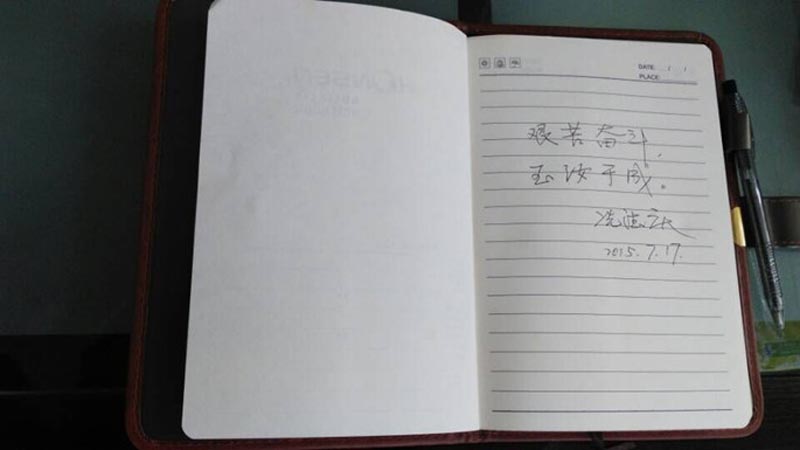 DATE: / /
PLACE:
艰苦奋斗,
玉汝于成。
冼德庆
2015.7.17.